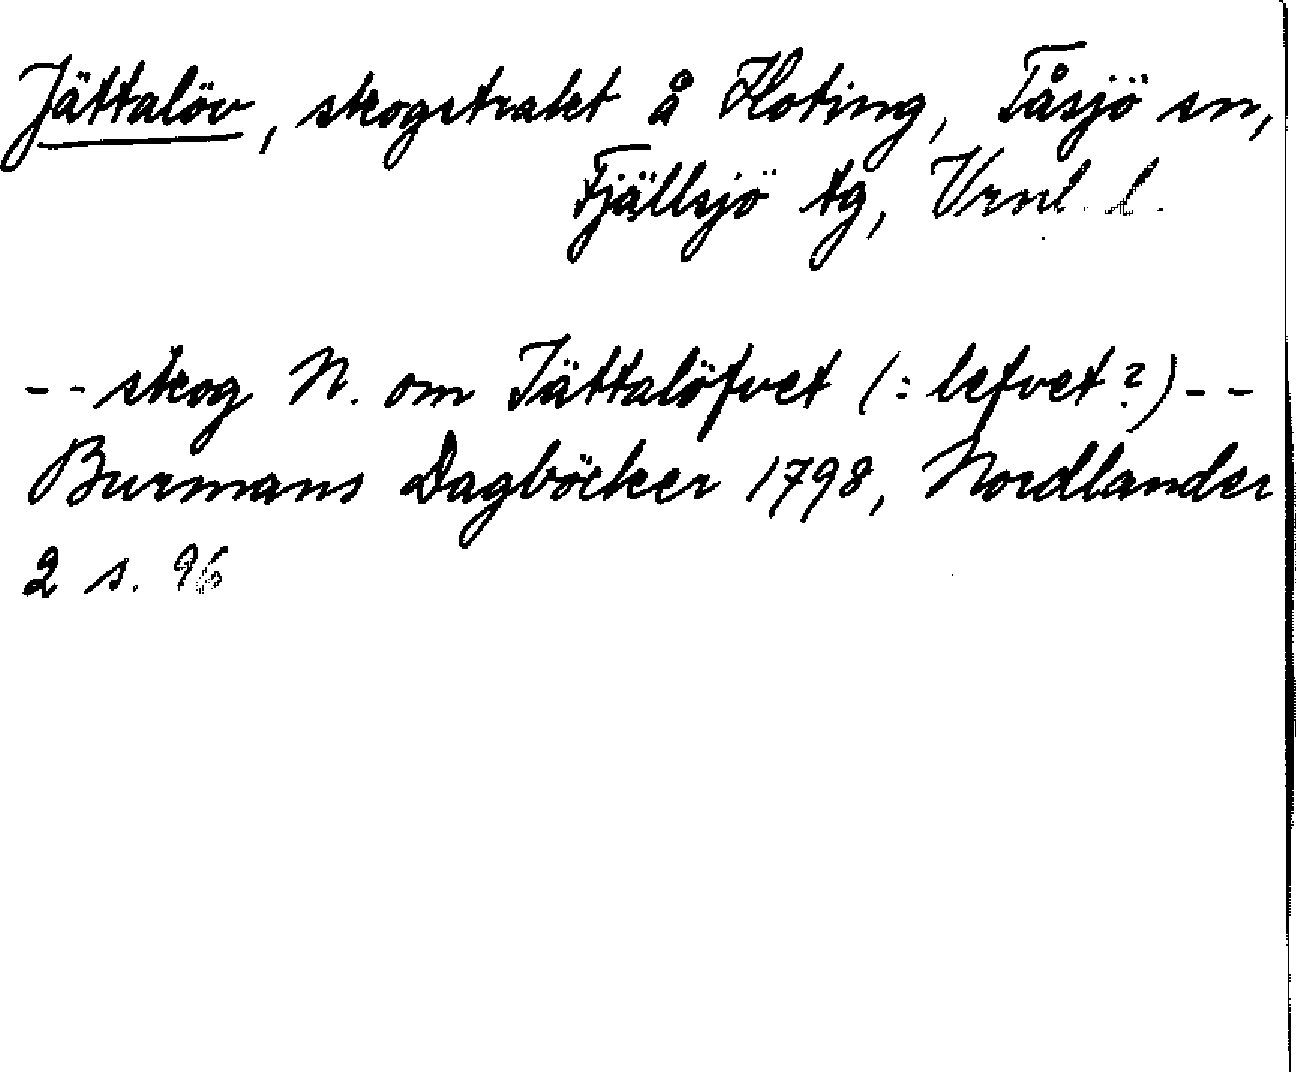 Jättalöv, skogstrakt å Hoting, Tåsjö sn,
Fjällsjö tg, Vrnl. l.
- - skog N. om Jättalöfvet (: lefvet?) - -
Burmans Dagböcker 1798, Nordlander
2 s. 96